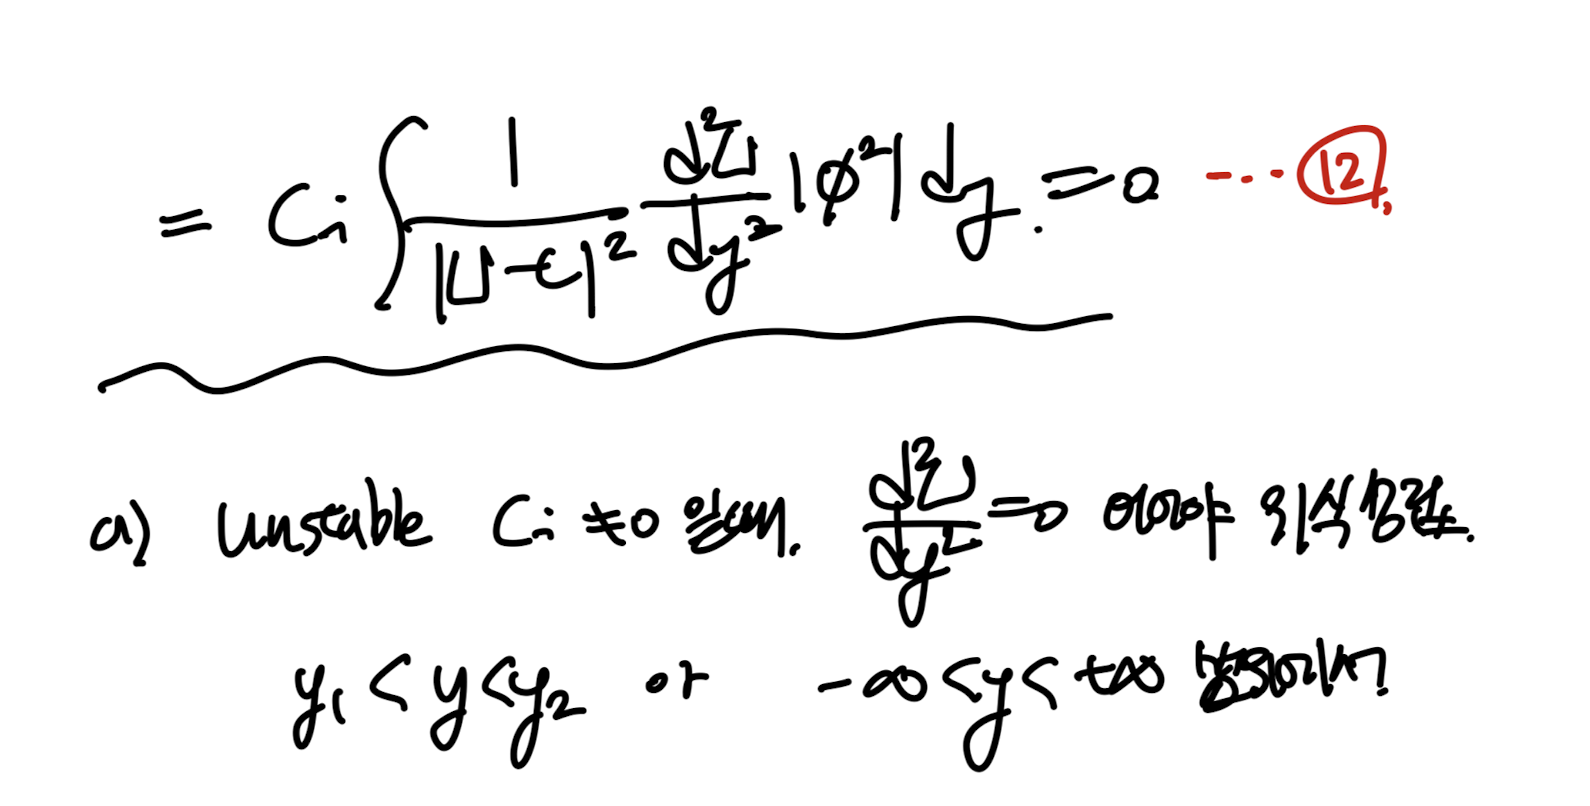 = Ci ∫ 1/|U-c|² d²U/dy² |φ²| dy. = 0 --- ⑫,
a) unstable Ci ≠0 일때. d²U/dy² =0 이어야 위식성립.
y₁ < y < y₂ or -∞ < y < +∞ 범위에서